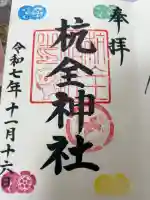 奉拝
杭全神社
令和七年十一月十六日